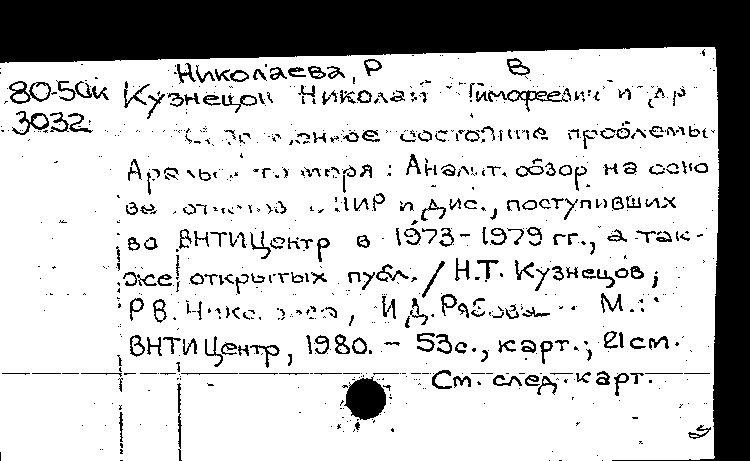 Николаева, Р В
80-50к Кузнецов Николай Тимофеевич и др
3032
Современное состояние проблемы
Аральского моря : Аналит. обзор на осно
ве отчетов о НИР и дис., поступивших
во ВНТИЦентр в 1973-1979 гг., а так-
же открытых публ. / Н.Т. Кузнецов,
Р В. Николаева, И.Д. Рябова. - М.:
ВНТИЦентр, 1980. - 53с., карт.; 21см.
См. след. карт.